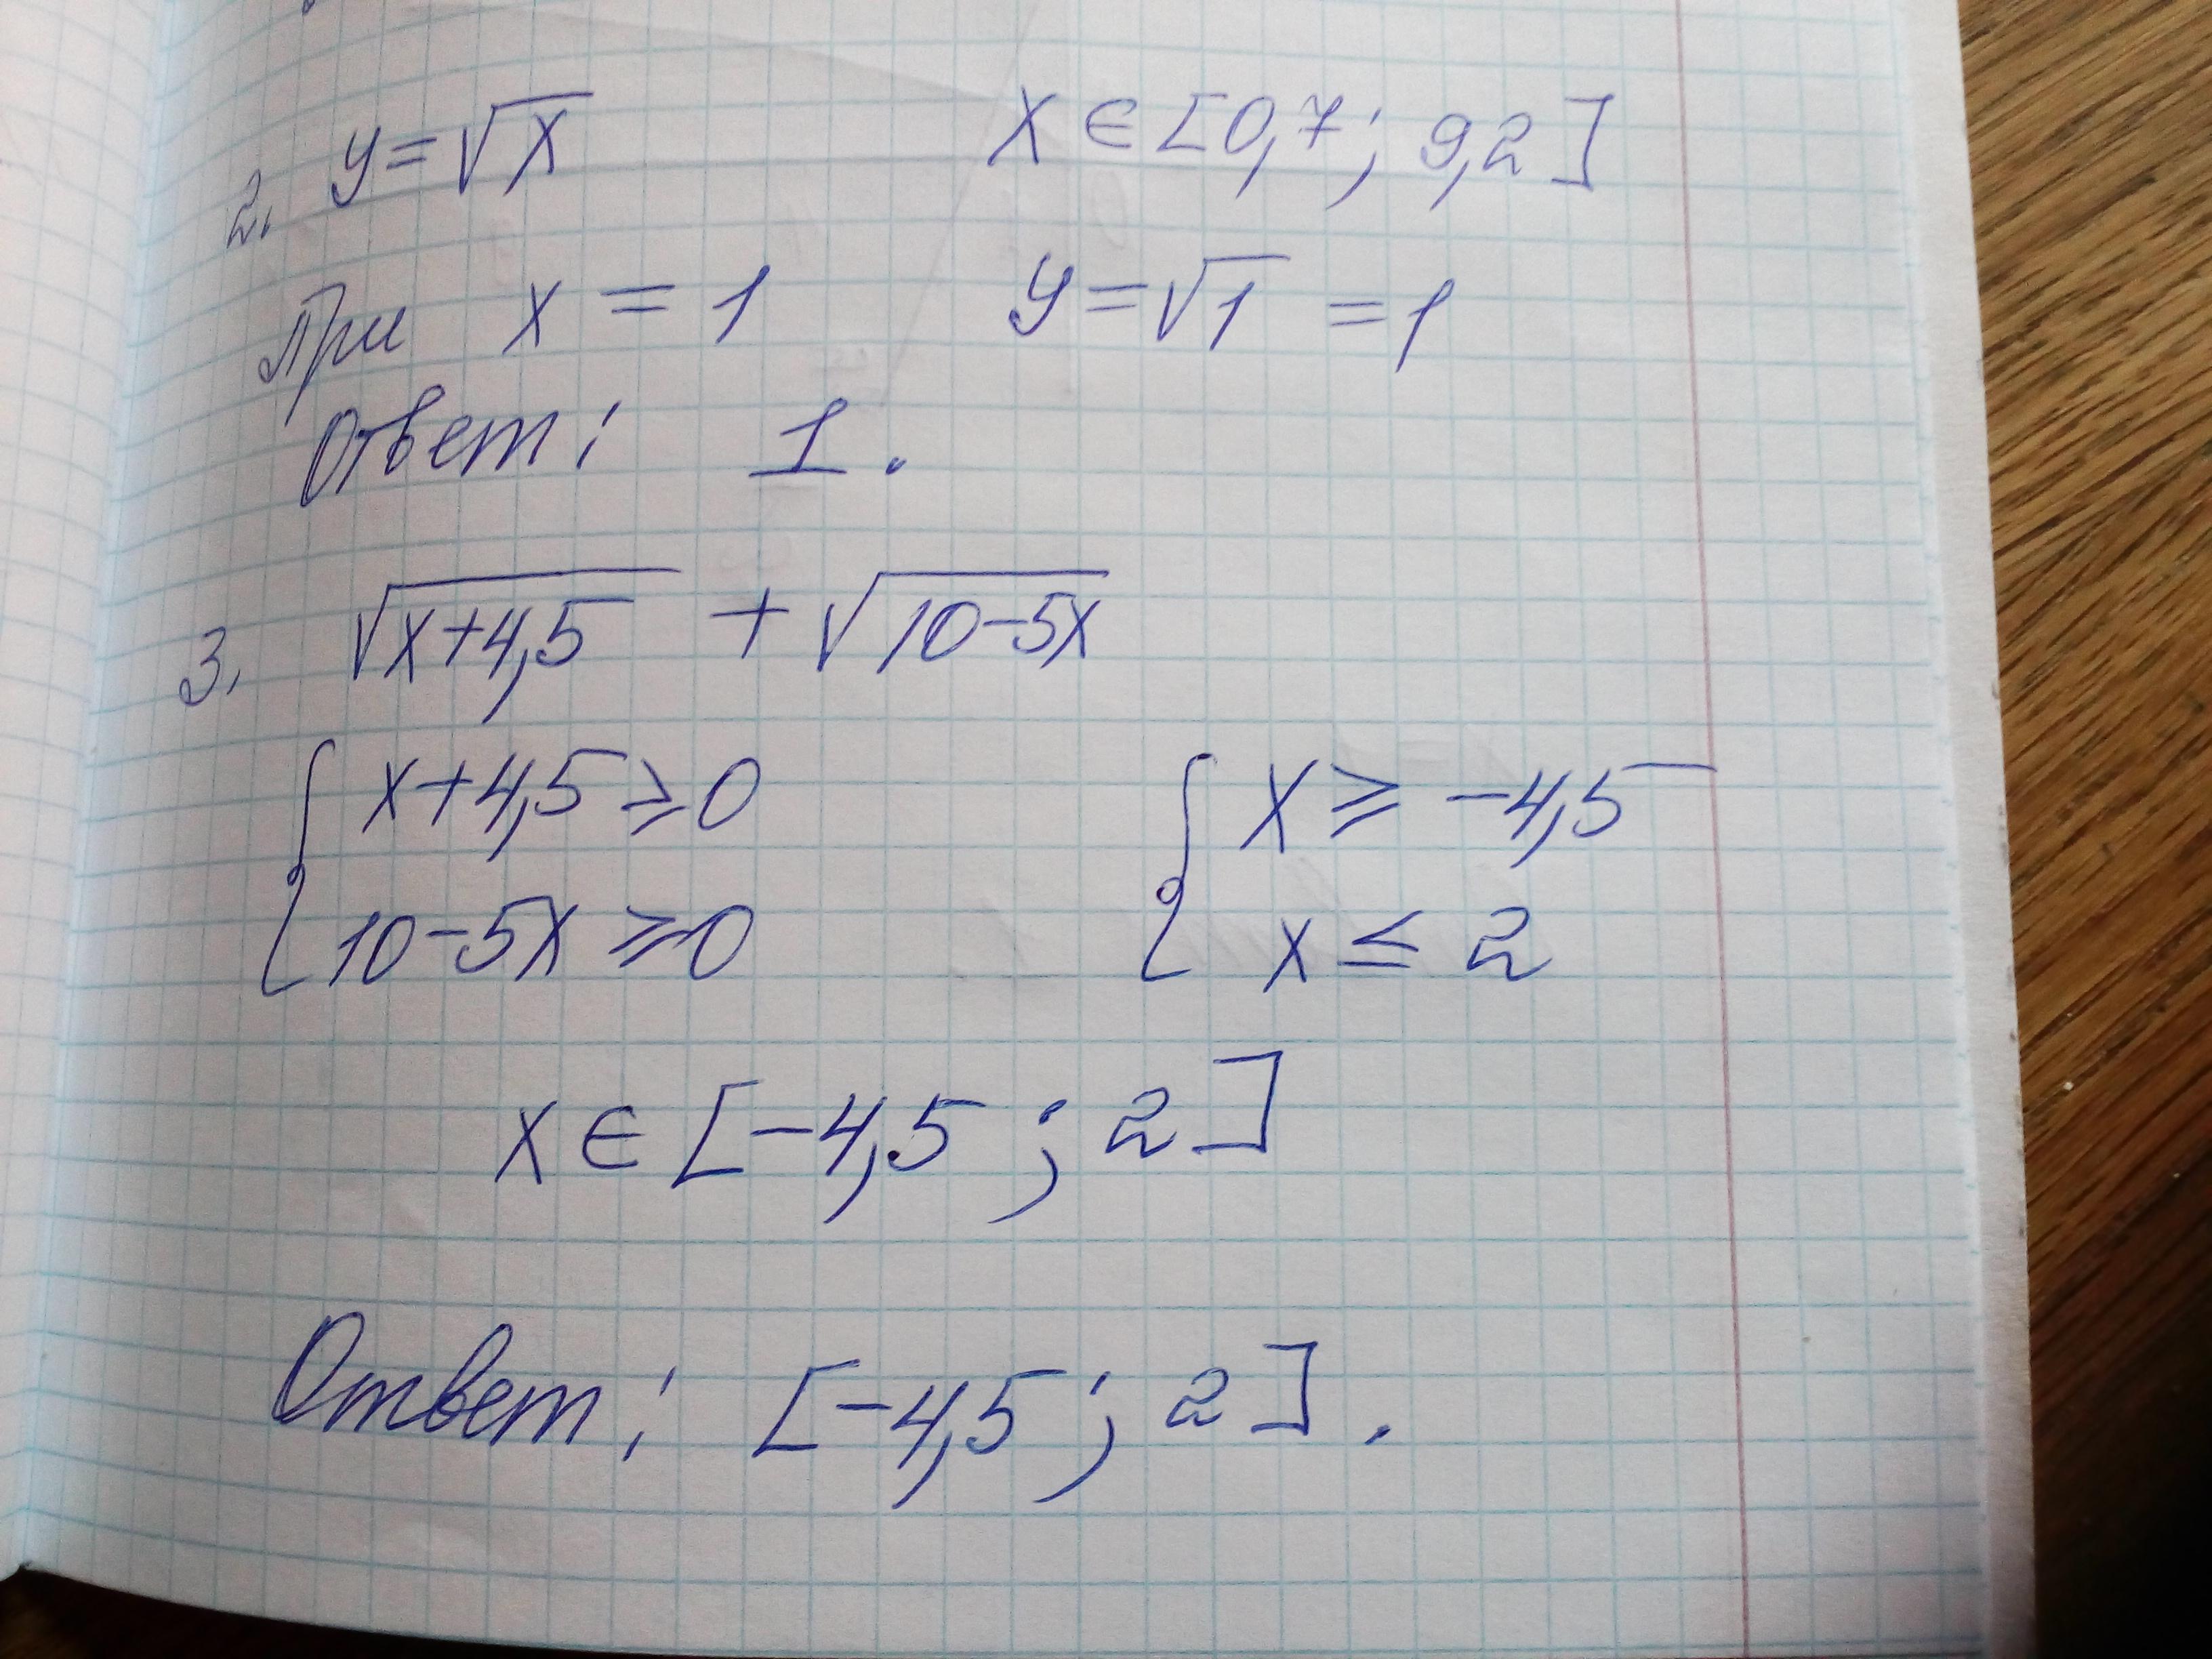 2. y=√x x∈[0,7; 9,2]
При x = 1 y=√1 =1
Ответ: 1.
3. √x+4,5 + √10-5x
{ x+4,5⩾0 { x⩾ -4,5
10-5x ⩾0 x ⩽ 2
x∈[-4,5 ; 2]
Ответ: [-4,5; 2].